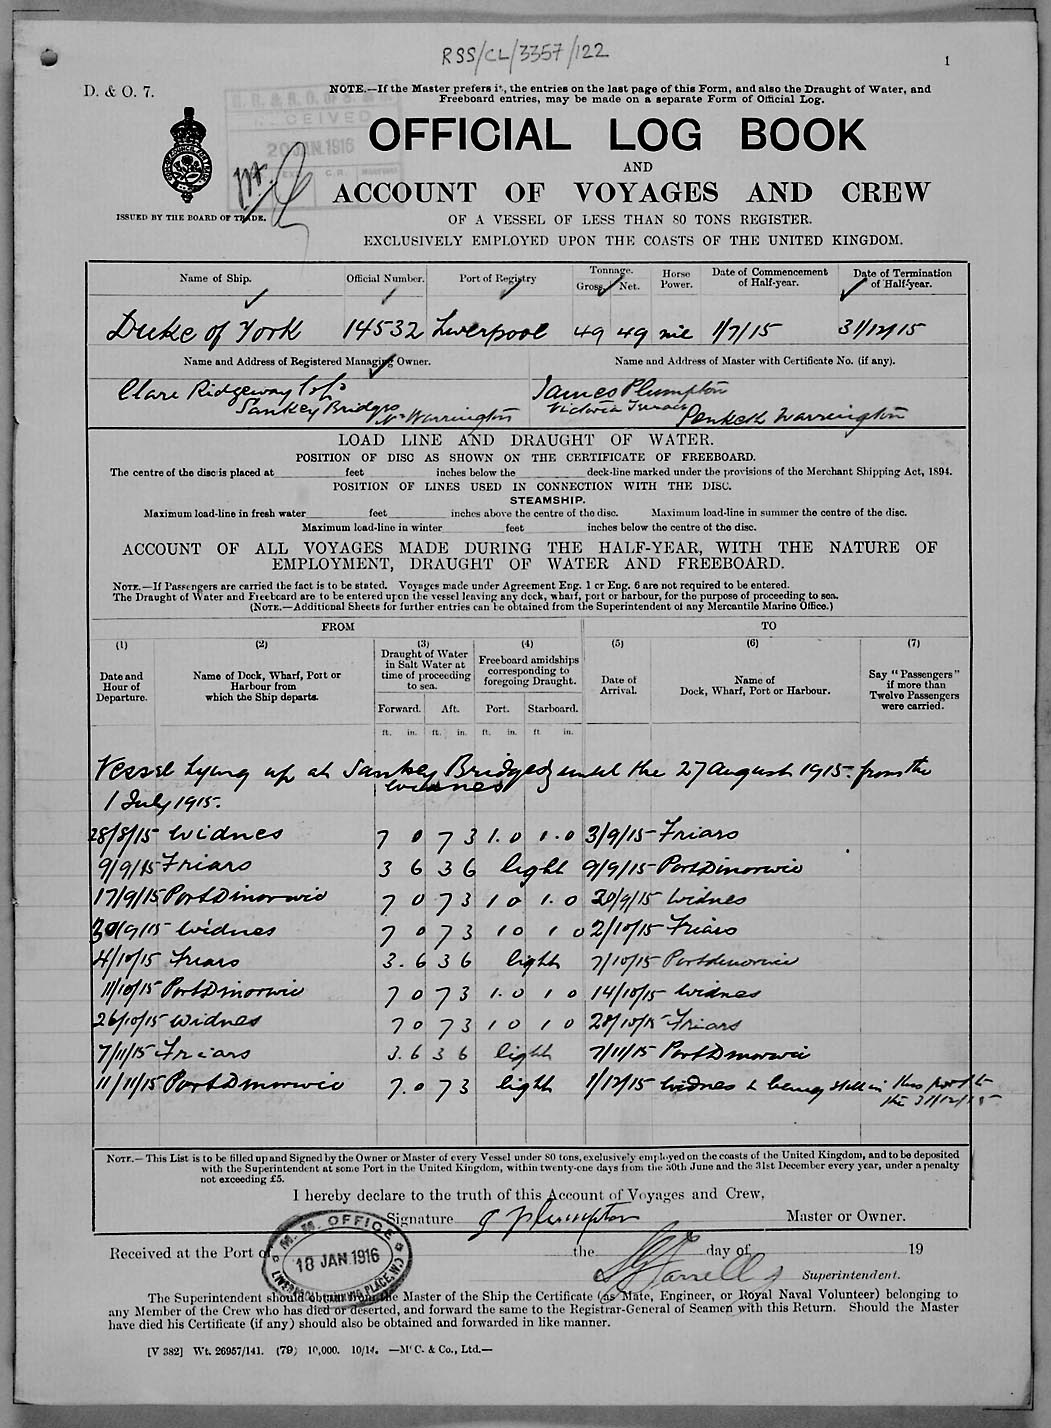 RSS/CL/3357/122
1
D. & O. 7.
NOTE.—If the Master prefers it, the entries on the last page of this Form, and also the Draught of Water, and
Freeboard entries, may be made on a separate Form of Official Log.
RECEIVED
20 JAN. 1916
OFFICIAL LOG BOOK
AND
ACCOUNT OF VOYAGES AND CREW
ISSUED BY THE BOARD OF TRADE.
OF A VESSEL OF LESS THAN 80 TONS REGISTER.
EXCLUSIVELY EMPLOYED UPON THE COASTS OF THE UNITED KINGDOM.
Name of Ship. Official Number. Port of Registry Tonnage. Gross. Net. Horse Power. Date of Commencement of Half-year. Date of Termination of Half-year.
Duke of York 14532 Liverpool 49 49 nil 1/7/15 31/12/15
Name and Address of Registered Managing Owner. Name and Address of Master with Certificate No. (if any).
Clare Ridgeway & Co James Plumpton
Sankey Bridges Nr Warrington Victoria Terrace Penketh Warrington
LOAD LINE AND DRAUGHT OF WATER.
POSITION OF DISC AS SHOWN ON THE CERTIFICATE OF FREEBOARD.
The centre of the disc is placed at feet inches below the deck-line marked under the provisions of the Merchant Shipping Act, 1894.
POSITION OF LINES USED IN CONNECTION WITH THE DISC.
STEAMSHIP.
Maximum load-line in fresh water feet inches above the centre of the disc. Maximum load-line in summer the centre of the disc.
Maximum load-line in winter feet inches below the centre of the disc.
ACCOUNT OF ALL VOYAGES MADE DURING THE HALF-YEAR, WITH THE NATURE OF
EMPLOYMENT, DRAUGHT OF WATER AND FREEBOARD.
NOTE.—If Passengers are carried the fact is to be stated. Voyages made under Agreement Eng. 1 or Eng. 6 are not required to be entered.
The Draught of Water and Freeboard are to be entered upon the vessel leaving any dock, wharf, port or harbour, for the purpose of proceeding to sea.
(NOTE.—Additional Sheets for further entries can be obtained from the Superintendent of any Mercantile Marine Office.)
FROM TO
(1) (2) (3) (4) (5) (6) (7)
Date and Hour of Departure. Name of Dock, Wharf, Port or Harbour from which the Ship departs. Draught of Water in Salt Water at time of proceeding to sea. Freeboard amidships corresponding to foregoing Draught. Date of Arrival. Name of Dock, Wharf, Port or Harbour. Say "Passengers" if more than Twelve Passengers were carried.
Forward. Aft. Port. Starboard.
ft. in. ft. in. ft. in. ft. in.
Vessel Lying up at Sankey Bridges until the 27 August 1915 from the
Widnes
1 July 1915.
28/8/15 Widnes 7 0 7 3 1.0 1.0 3/9/15 Friars
9/9/15 Friars 3 6 3 6 light 9/9/15 Port Dinorwic
17/9/15 Port Dinorwic 7 0 7 3 1 0 1.0 20/9/15 Widnes
30/9/15 Widnes 7 0 7 3 1 0 1 0 2/10/15 Friars
4/10/15 Friars 3.6 3 6 light 7/10/15 Portdinorwic
11/10/15 Port Dinorwic 7 0 7 3 1.0 1 0 14/10/15 Widnes
26/10/15 Widnes 7 0 7 3 1 0 1 0 28/10/15 Friars
7/11/15 Friars 3.6 3 6 light 7/11/15 Port Dinorwic
11/11/15 Port Dinorwic 7.0 7 3 light 1/12/15 Widnes & being still in this port to
the 31/12/15
NOTE.—This List is to be filled up and Signed by the Owner or Master of every Vessel under 80 tons, exclusively employed on the coasts of the United Kingdom, and to be deposited
with the Superintendent at some Port in the United Kingdom, within twenty-one days from the 30th June and the 31st December every year, under a penalty
not exceeding £5.
I hereby declare to the truth of this Account of Voyages and Crew,
Signature J Plumpton Master or Owner.
Received at the Port of the day of 19
M. M. OFFICE
18 JAN. 1916
Farrell Superintendent.
The Superintendent should obtain from the Master of the Ship the Certificate (as Mate, Engineer, or Royal Naval Volunteer) belonging to
any Member of the Crew who has died or deserted, and forward the same to the Registrar-General of Seamen with this Return. Should the Master
have died his Certificate (if any) should also be obtained and forwarded in like manner.
[V 382] Wt. 26957/141. (79) 10,000. 10/14. —McC. & Co., Ltd.—